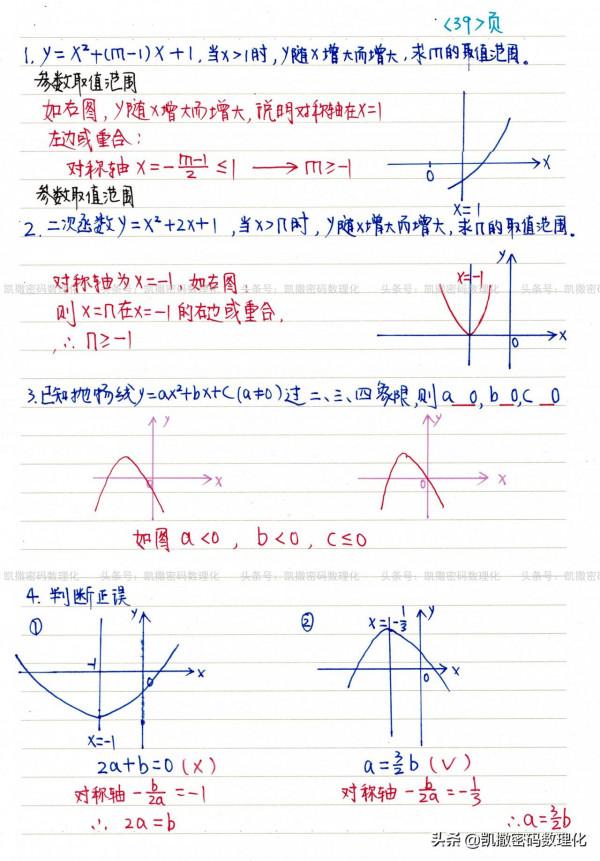 <39>页
1. y=x²+(m-1)x+1，当x>1时，y随x增大而增大，求m的取值范围。
参数取值范围
如右图，y随x增大而增大，说明对称轴在x=1
左边或重合：
对称轴 x=-\frac{m-1}{2}≤1 ⟶ m≥-1
0 x
x=1
参数取值范围
2. 二次函数y=x²+2x+1，当x>n时，y随x增大而增大，求n的取值范围。
对称轴为x=-1，如右图
则x=n在x=-1的右边或重合，
∴ n≥-1
x=-1 y
0 x
3. 已知抛物线y=ax²+bx+c(a≠0)过二、三、四象限，则a__0，b__0，c__0
y y
0 x 0 x
如图 a<0，b<0，c≤0
头条号：凯撒密码数理化 头条号：凯撒密码数理化 头条号：凯撒密码数理化
4. 判断正误
① y
-1 0 x
x=-1
2a+b=0 (×)
对称轴 -\frac{b}{2a}=-1
∴ 2a=b
② x=-\frac{1}{3} y
0 x
a=\frac{3}{2}b (√)
对称轴 -\frac{b}{2a}=-\frac{1}{3}
∴a=\frac{3}{2}b
头条 @凯撒密码数理化